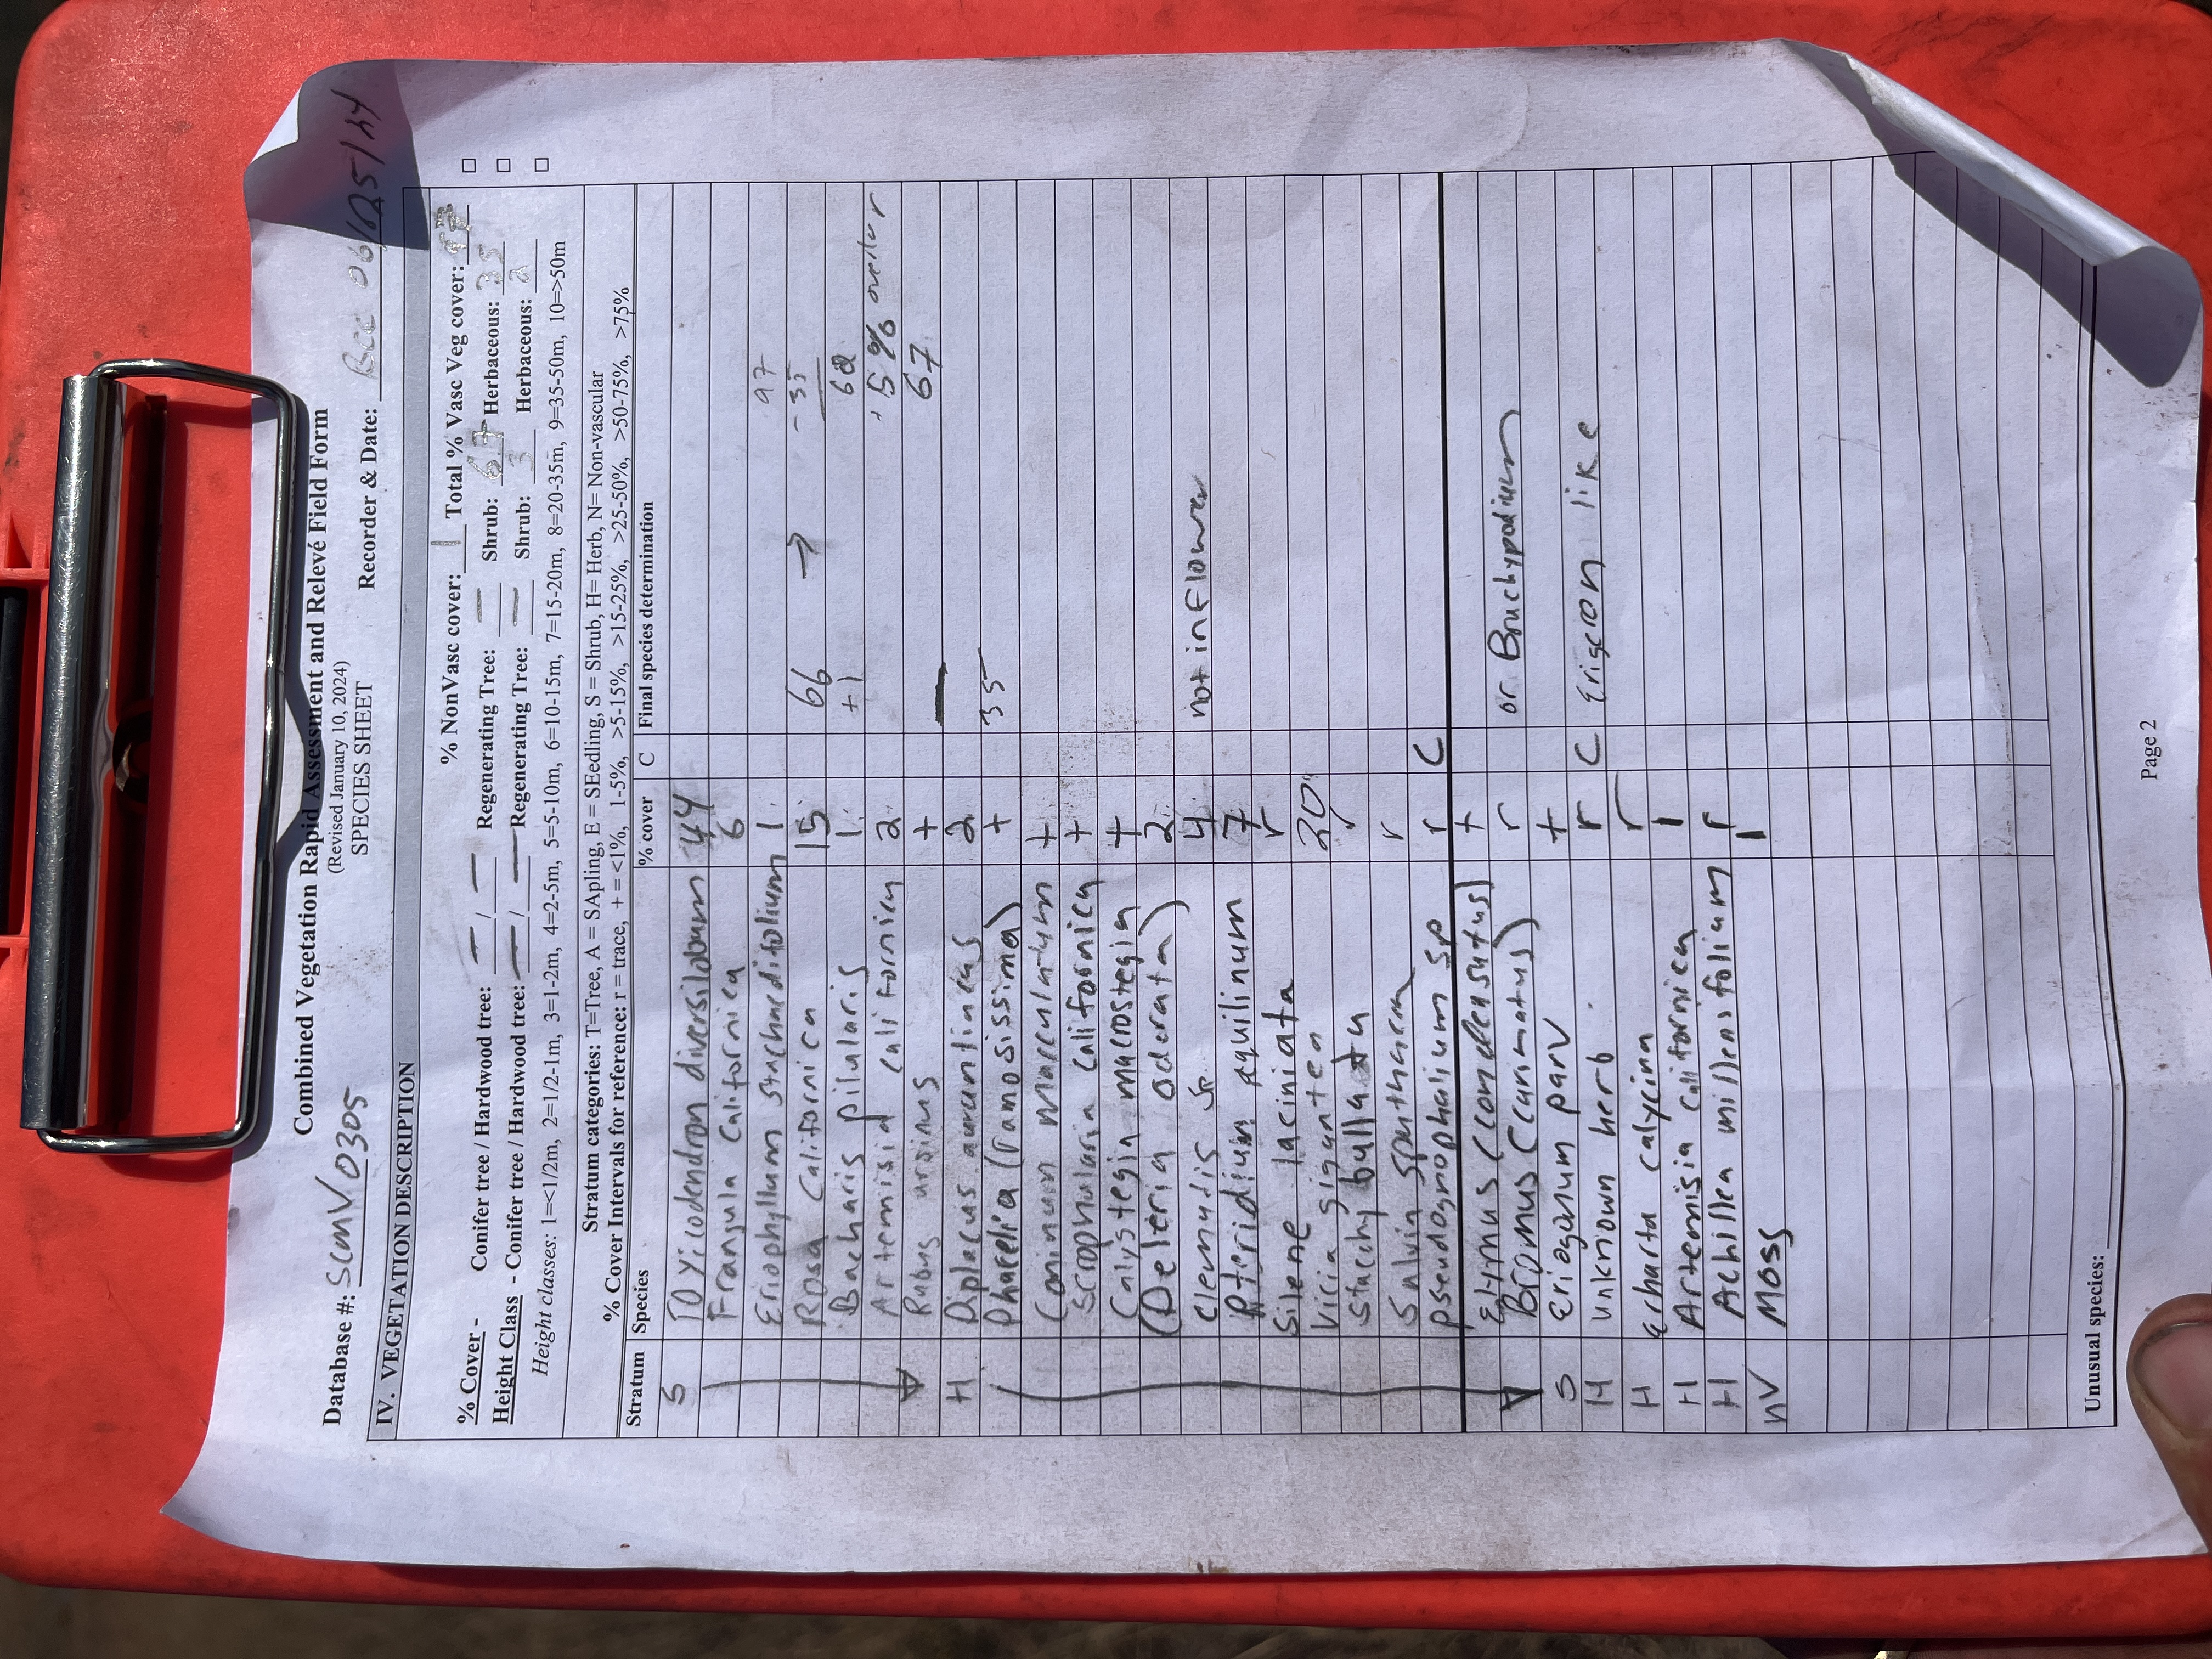 Combined Vegetation Rapid Assessment and Relevé Field Form
(Revised January 10, 2024)
SPECIES SHEET
Database #: SCMV0305 Recorder & Date: BCC 06/05/24
IV. VEGETATION DESCRIPTION
% NonVasc cover: 1 Total % Vasc Veg cover: 97
% Cover - Conifer tree / Hardwood tree: — / — Regenerating Tree: — Shrub: 67 Herbaceous: 35
Height Class - Conifer tree / Hardwood tree: — / — Regenerating Tree: — Shrub: 3 Herbaceous: 2
Height classes: 1=<1/2m, 2=1/2-1m, 3=1-2m, 4=2-5m, 5=5-10m, 6=10-15m, 7=15-20m, 8=20-35m, 9=35-50m, 10=>50m
Stratum categories: T=Tree, A = SApling, E = SEedling, S = Shrub, H= Herb, N= Non-vascular
% Cover Intervals for reference: r = trace, + = <1%, 1-5%, >5-15%, >15-25%, >25-50%, >50-75%, >75%
Stratum Species % cover C Final species determination
S Toxicodendron diversilobum 44
Frangula californica 6
Eriophyllum staechadifolium 1 97
Rosa californica 15 66 → -35
Baccharis pilularis 1 +1 62
Artemisia californica 2 +5% overlap
Rubus ursinus + 67
H Diplacus aurantiacus 2
Phacelia (ramosissima) + 35
Coninum maculatum +
Scrophularia californica +
Calystegia macrostegia +
(Deleria oderata) 2
clematis sp. 4 not in flower
Pteridium aquilinum 7
Silene laciniata r
Vicia gigantea 20
Stachy bullata
Salvia spathacea r
pseudognophalium sp r C
Elymus (condensatus) +
Bromus (carinatus) r or Brachypodium
S eriogonum parv +
H unknown herb r C Erigeron like
H Erharta calycina r
H Artemisia californica 1
H Achillea millenifolium r
NV Moss 1
Unusual species:
Page 2